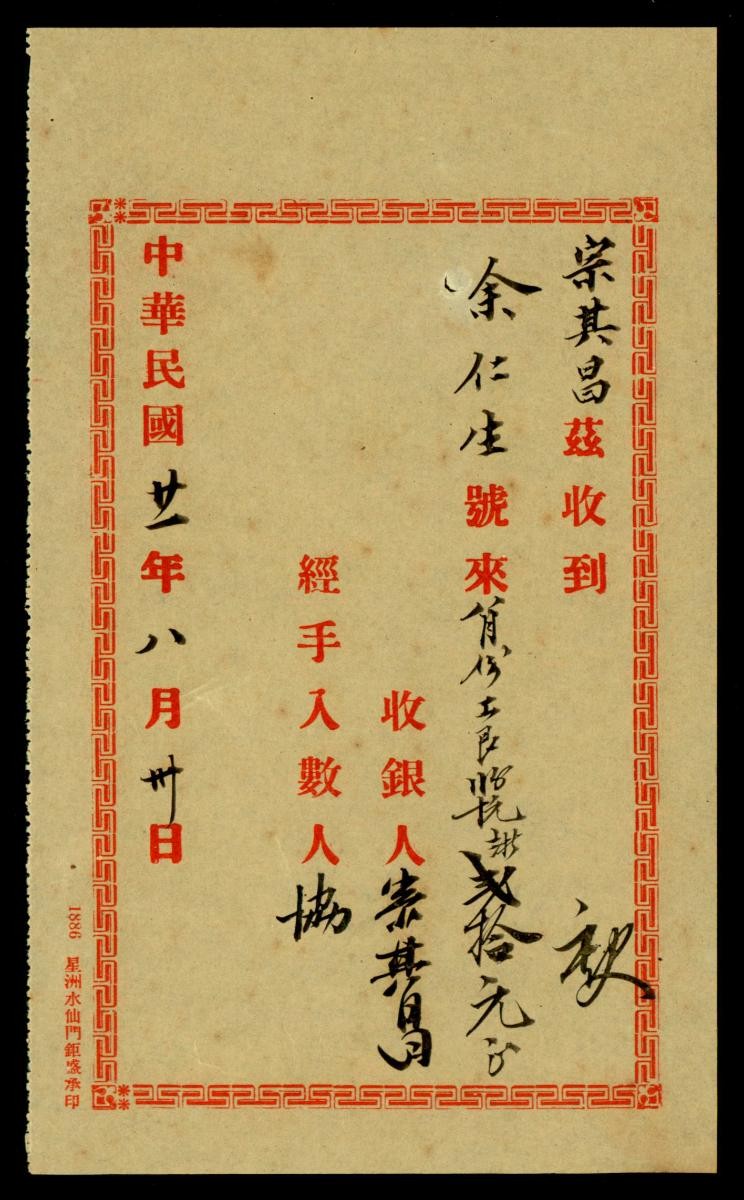 宗其昌茲收到
余仁生號來
貳拾元正
收銀人宗其昌
經手入數人協
中華民國廿一年八月卅日
1886 星洲水仙門鉅盛承印